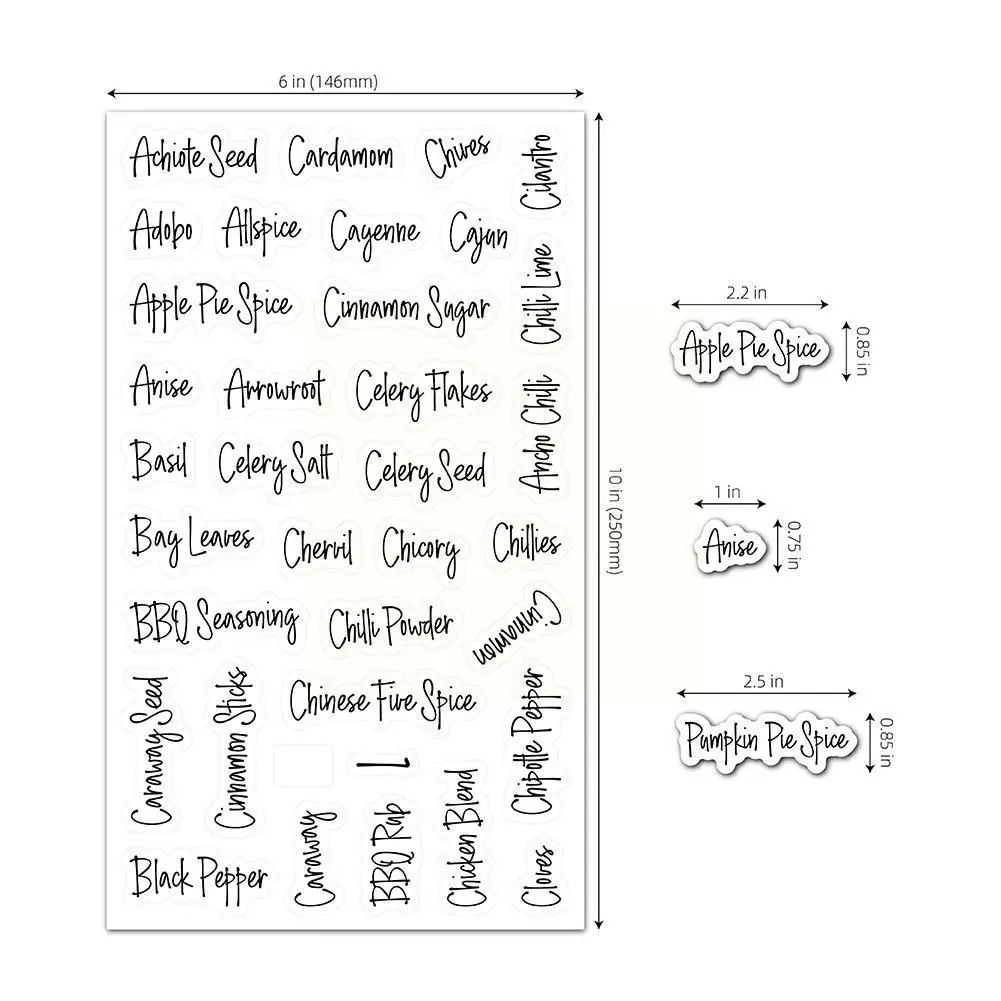 6 in (146mm)
Achiote Seed Cardamom Chives Cilantro
Adobo Allspice Cayenne Cajun
Apple Pie Spice Cinnamon Sugar Chilli Lime
Anise Arrowroot Celery Flakes Ancho Chilli
Basil Celery Salt Celery Seed
Bay Leaves Chervil Chicory Chillies
BBQ Seasoning Chilli Powder Cinnamon
Caraway Seed Cinnamon Sticks Chinese Five Spice Chipotle Pepper
1
Black Pepper Caraway BBQ Rub Chicken Blend Cloves
10 in (250mm)
2.2 in
Apple Pie Spice
0.85 in
1 in
Anise
0.75 in
2.5 in
Pumpkin Pie Spice
0.85 in